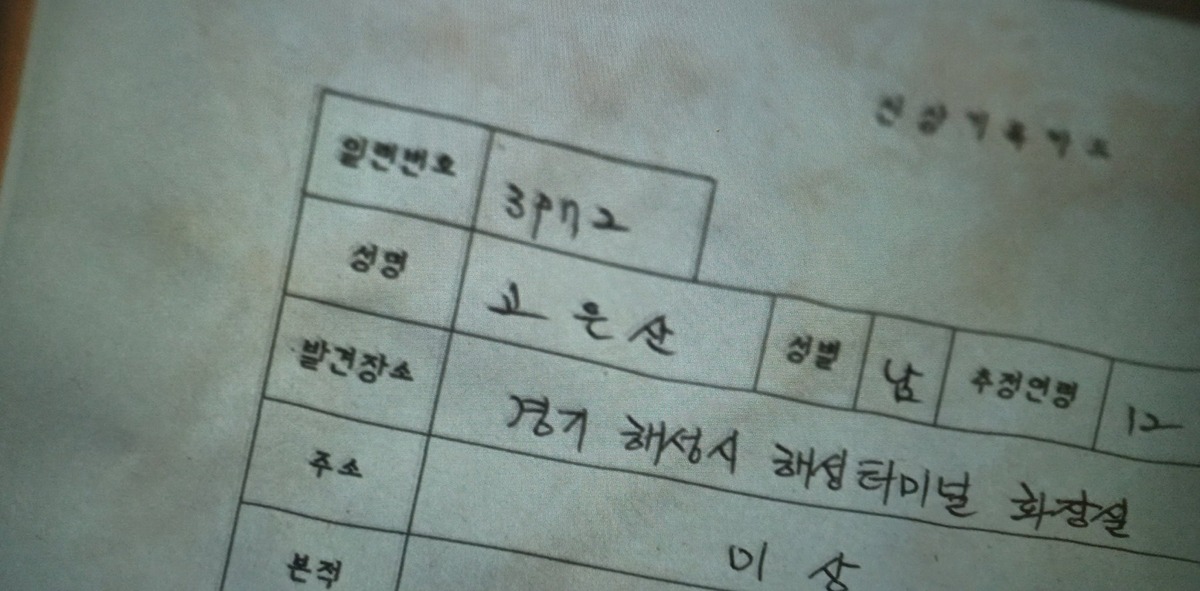 신상기록카드
일련번호 3972
성명 고은산 성별 남 추정연령 12
발견장소 경기 해성시 해성터미널 화장실
주소 미상
본적